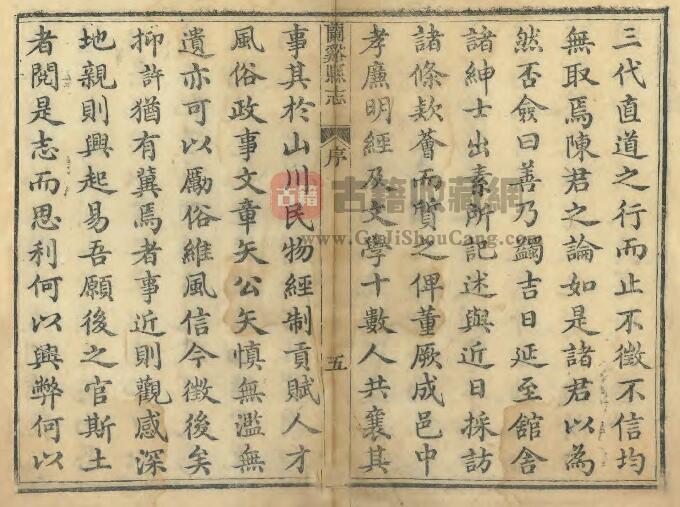 三代直道之行而止不徵不信均
無取焉陳君之論如是諸君以為
然否僉曰善乃蠲吉日延至舘舎
諸紳士出素所記述與近日採訪
諸條欵薈而質之俾董厥成邑中
孝廉明經及文學十數人共襄其
蘭谿縣志
序
五
事其於山川民物經制貢賦人才
風俗政事文章矢公矢慎無濫無
遺亦可以勵俗維風信今徵後矣
抑許猶有冀焉者事近則觀感深
地親則興起易吾願後之官斯土
者閱是志而思利何以興弊何以
古籍
古籍收藏網
www.GuJiShouCang.com